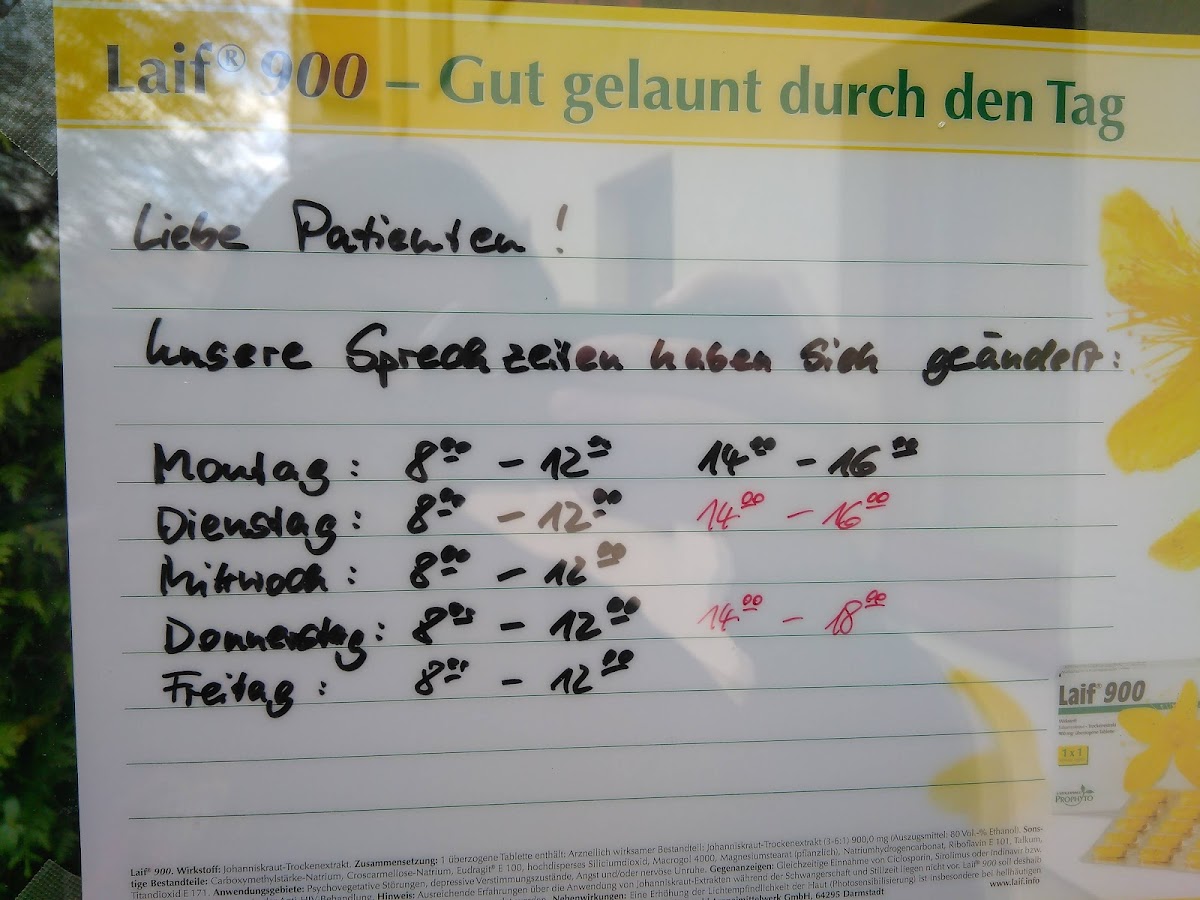 Laif® 900 – Gut gelaunt durch den Tag
Liebe Patienten !
Unsere Sprechzeiten haben sich geändert:
Montag : 8⁰⁰ – 12⁰⁰ 14⁰⁰ – 16⁰⁰
Dienstag : 8⁰⁰ – 12⁰⁰ 14⁰⁰ – 16⁰⁰
Mittwoch : 8⁰⁰ – 12⁰⁰
Donnerstag : 8⁰⁰ – 12⁰⁰ 14⁰⁰ – 18⁰⁰
Freitag : 8⁰⁰ – 12⁰⁰
Laif® 900
1x1
PROPHYTO
Laif® 900. Wirkstoff: Johanniskraut-Trockenextrakt. Zusammensetzung: 1 überzogene Tablette enthält: Arzneilich wirksamer Bestandteil: Johanniskraut-Trockenextrakt (3-6:1) 900,0 mg (Auszugsmittel: 80 Vol.-% Ethanol). Sons-
tige Bestandteile: Carboxymethylstärke-Natrium, Croscarmellose-Natrium, Eudragit® E 100, hochdisperses Siliciumdioxid, Macrogol 4000, Magnesiumstearat (pflanzlich), Natriumhydrogencarbonat, Riboflavin E 101, Talkum,
Titandioxid E 171. Anwendungsgebiete: Psychovegetative Störungen, depressive Verstimmungszustände, Angst und/oder nervöse Unruhe. Gegenanzeigen: Gleichzeitige Einnahme von Ciclosporin, Sirolimus oder Indinavir bzw.
Hinweis: Ausreichende Erfahrungen über die Anwendung von Johanniskraut-Extrakten während der Schwangerschaft und Stillzeit liegen nicht vor. Laif® 900 soll deshalb
Nebenwirkungen: Eine Erhöhung der Lichtempfindlichkeit der Haut (Photosensibilisierung) ist insbesondere bei hellhäutigen
GmbH, 64295 Darmstadt
www.laif.info